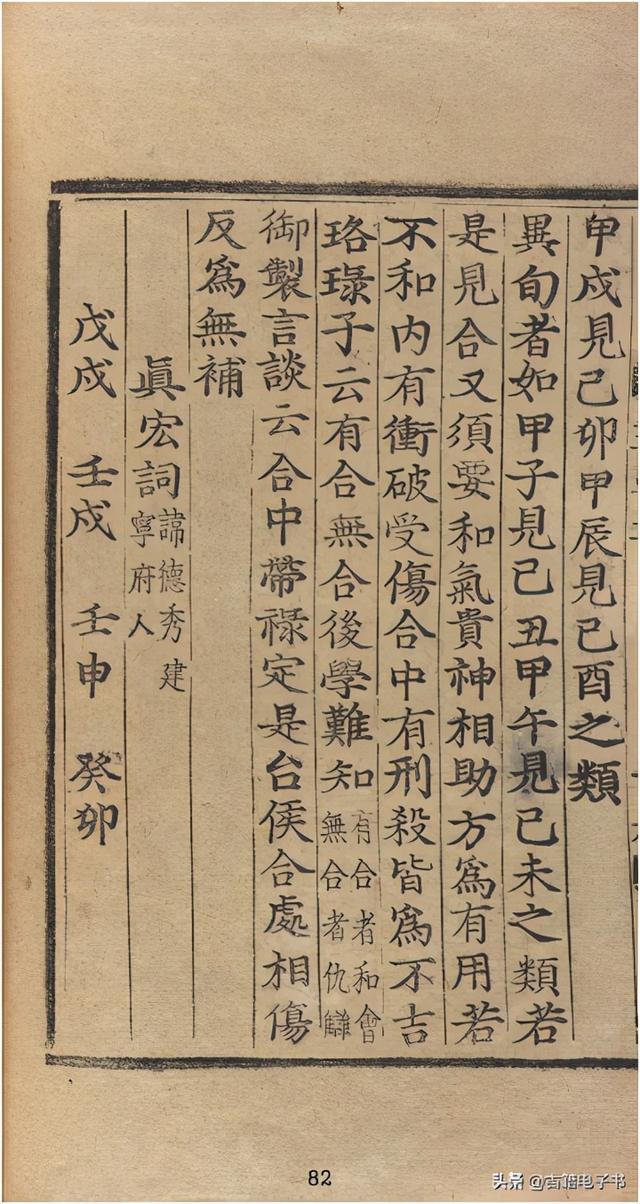 甲戌見己卯甲辰見己酉之類
異旬者如甲子見己丑甲午見己未之類若
是見合又須要和氣貴神相助方爲有用若
不和内有衝破受傷合中有刑殺皆爲不吉
珞琭子云有合無合後學難知有合者和會
無合者仇讎
御製言談云合中帶祿定是台侯合處相傷
反爲無補
眞宏詞諱德秀建
寧府人
戊戌 壬戌 壬申 癸卯
82
头条 @古籍电子书